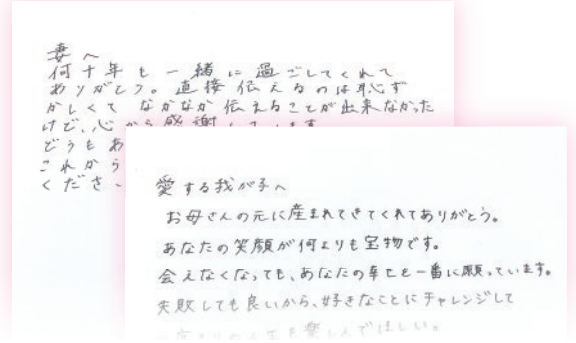 妻へ
何十年も一緒に過ごしてくれて
ありがとう。直接伝えるのは恥ず
かしくてなかなか伝えることが出来なかった
けど、心から感謝しています
どうもあ
これから
くださ
愛する我が子へ
お母さんの元に産まれてきてくれてありがとう。
あなたの笑顔が何よりも宝物です。
会えなくなっても、あなたの幸せを一番に願っています。
失敗しても良いから、好きなことにチャレンジして
一度きりの人生を楽しんでほしい。